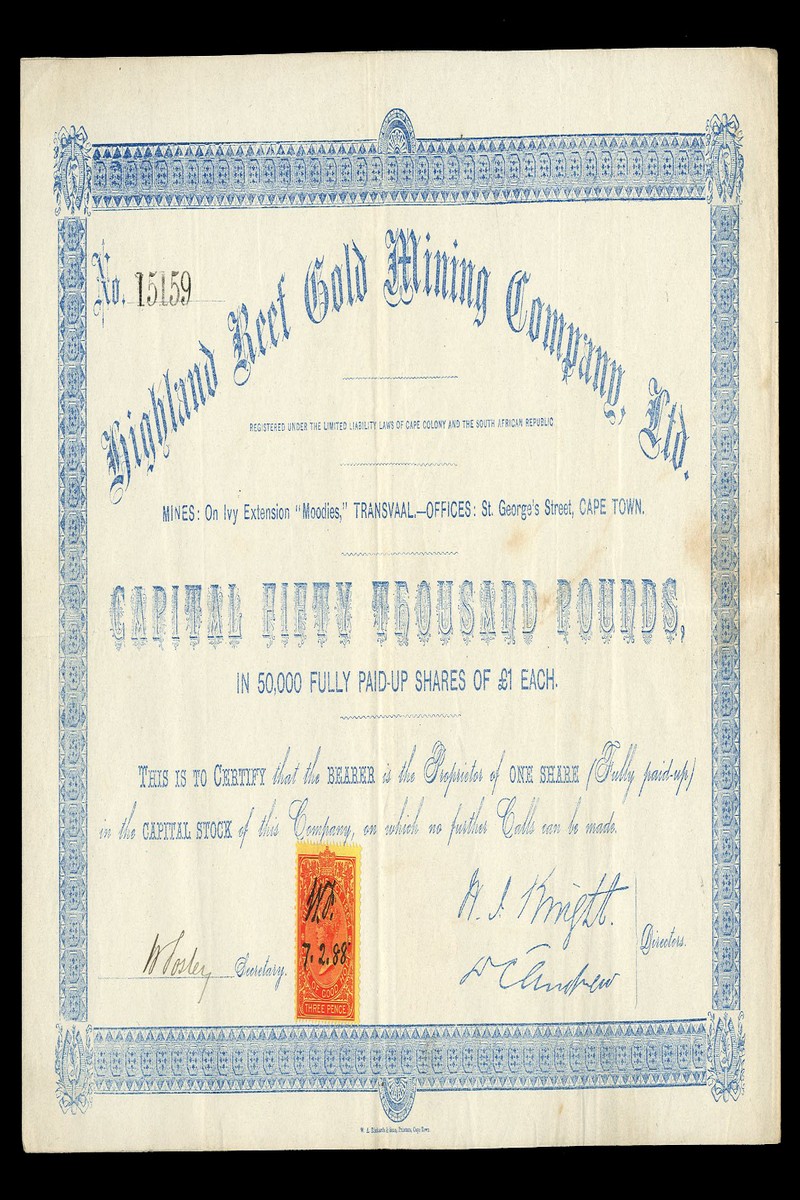 No. 15159
Highland Reef Gold Mining Company, Ltd.
REGISTERED UNDER THE LIMITED LIABILITY LAWS OF CAPE COLONY AND THE SOUTH AFRICAN REPUBLIC
MINES: On Ivy Extension "Moodies," TRANSVAAL.—OFFICES: St. George's Street, CAPE TOWN.
CAPITAL FIFTY THOUSAND POUNDS,
IN 50,000 FULLY PAID-UP SHARES OF £1 EACH.
THIS IS TO CERTIFY that the BEARER is the Proprietor of ONE SHARE (Fully paid-up)
in the CAPITAL STOCK of this Company, on which no further Calls can be made.
7.2.88
OF GOOD
THREE PENCE
Secretary.
H. J. Knight.
Directors.